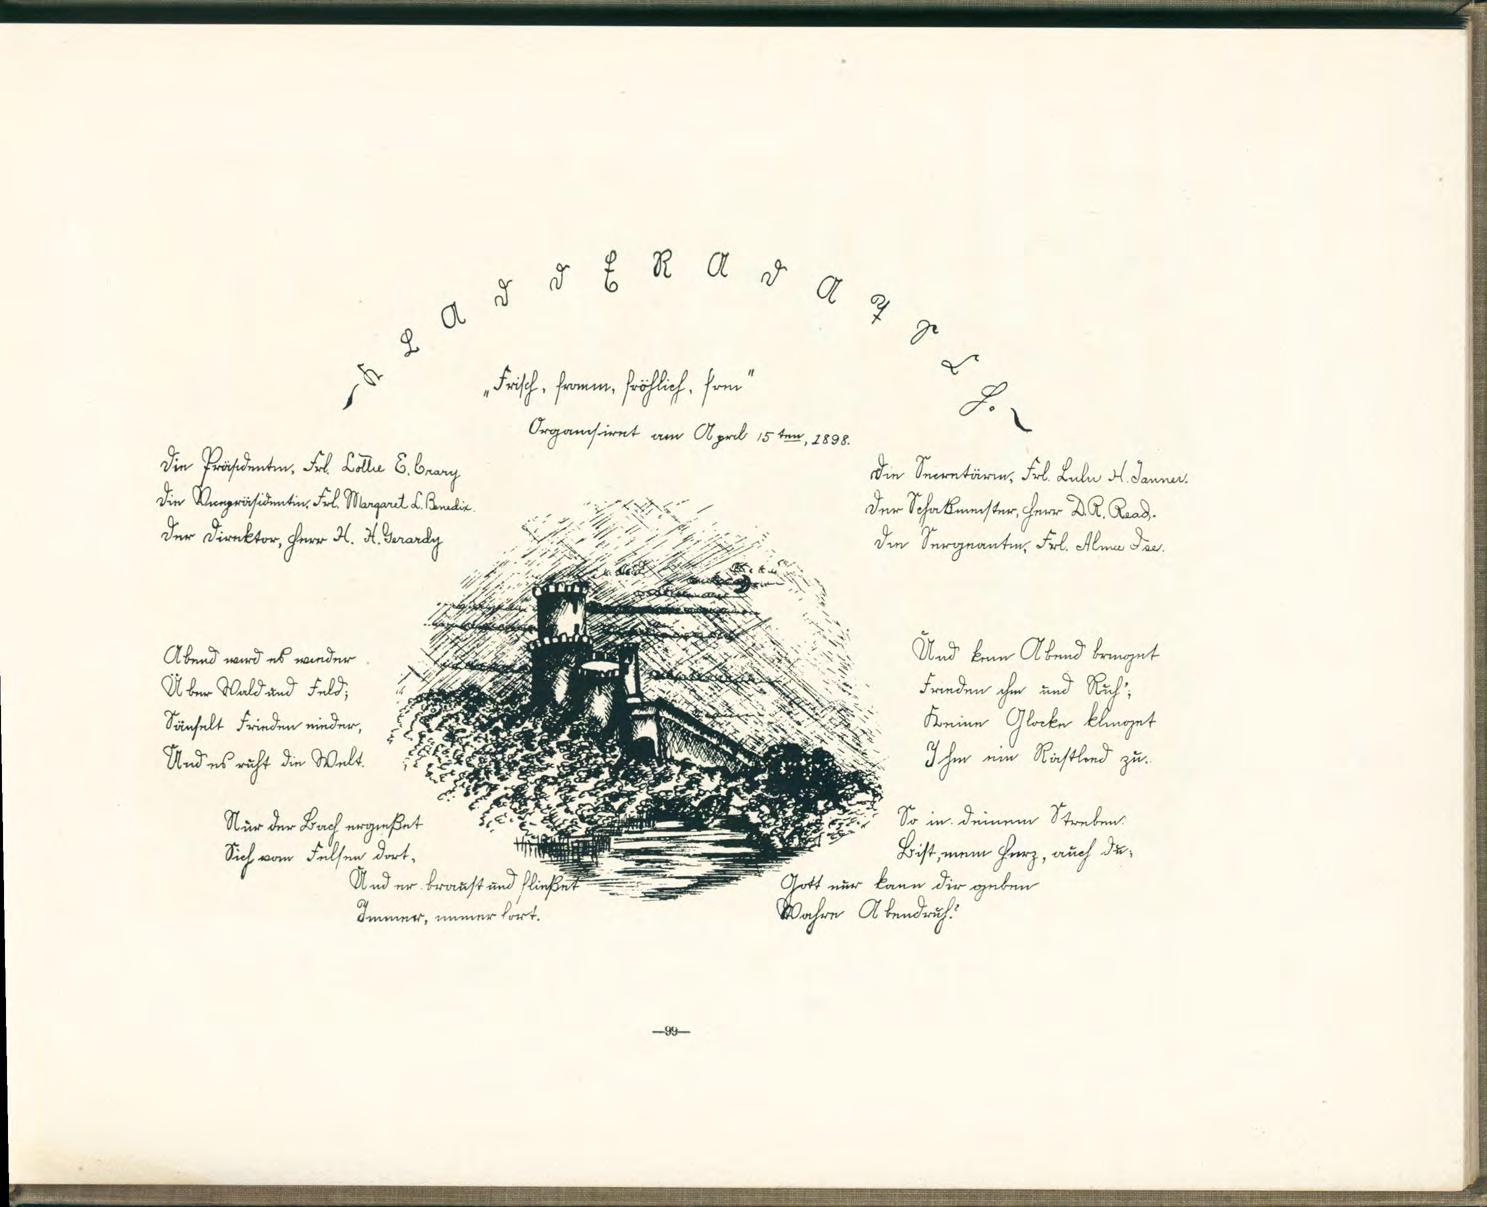 KLADDERADATSCH.
„Frisch, fromm, fröhlich, frei"
Organisiret am April 15ten, 1898.
Die Präsidentin, Frl. Lottie E. Crary
Die Vicepräsidentin, Frl. Margaret L. Benedix.
Der Direktor, Herr H. H. Gerardy
Die Secretärin, Frl. Lulu H.
Der Schatzmeister, Herr D. R. Read.
Die Sergeantin, Frl. Alma
Abend wird es wieder
Über Wald und Feld;
Säuselt Frieden nieder,
Und es ruht die Welt.
Nur der Bach ergießet
Sich vom Felsen dort,
Und er braust und fließet
Immer, immer fort.
Und kein Abend bringet
Frieden ihm und Ruh';
Keine Glocke klinget
Ihm ein Rastlied zu.
So in deinem Streben
Bist, mein Herz, auch du;
Gott nur kann dir geben
Wahre Abendruh!
—99—